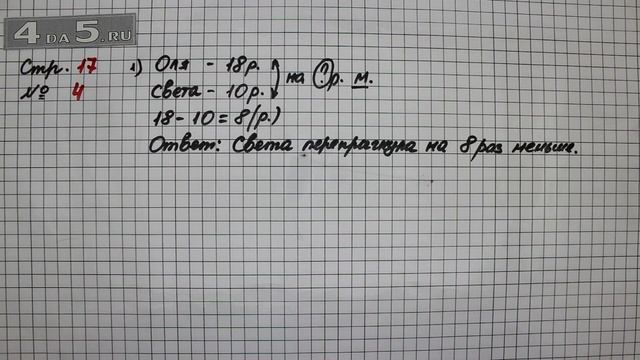 4DA5.RU
Стр. 17 1) Оля - 18р.
№ 4 Света - 10р. на ? р. м.
18 - 10 = 8 (р.)
Ответ: Света перепрыгнула на 8 раз меньше.